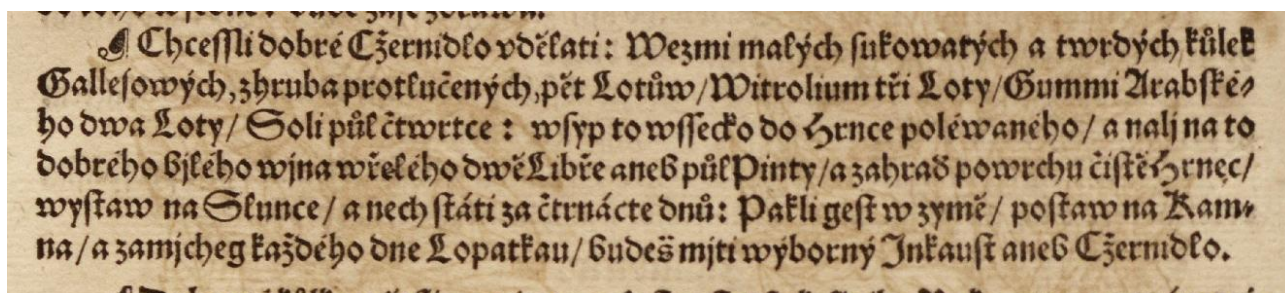 Chcessli dobré Cžernidlo vdělati: Wezmi malých sukowatých a twrdých kůlek
Gallesových, zhruba protlučených, pět Lotůw / Witrolium tři Loty / Gummi Arabské⸗
ho dwa Loty / Soli půl čtwrtce: wsyp to wssecko do Hrnce poléwaného / a nalj na to
dobrého bjlého wjna wřelého dwě Libře aneb půl Pinty / a zahraď powrchu čistě Hrnec /
wystaw na Slunce / a nech státi za čtrnácte dnů: Pakli gest w zymě / postaw na Kam⸗
na / a zamjcheg každého dne Lopatkau / budeš mjti wýborný Inkaust aneb Cžernidlo.